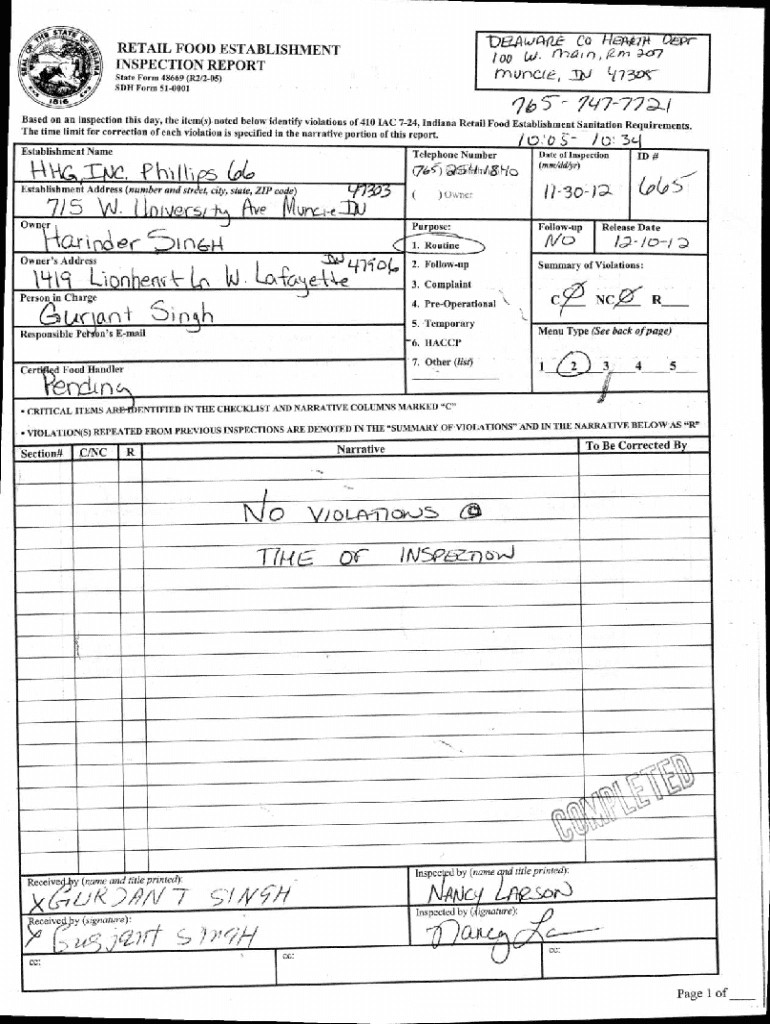 SEAL OF THE STATE OF INDIANA
1816
RETAIL FOOD ESTABLISHMENT
INSPECTION REPORT
State Form 48669 (R2/2-05)
SDH Form 51-0001
DELAWARE CO HEALTH DEPT
100 W. Main, Rm 207
Muncie, IN 47305
765-747-7721
Based on an inspection this day, the item(s) noted below identify violations of 410 IAC 7-24, Indiana Retail Food Establishment Sanitation Requirements.
The time limit for correction of each violation is specified in the narrative portion of this report.
10:05- 10:34
Establishment Name
HHG, INC. Phillips 66
Telephone Number
(765)
( ) Owner
Date of Inspection
(mm/dd/yr)
11-30-12
ID #
665
Establishment Address (number and street, city, state, ZIP code)
47303
715 W. University Ave Muncie IN
Owner
Harinder SINGH
Purpose:
1. Routine
2. Follow-up
3. Complaint
4. Pre-Operational
5. Temporary
6. HACCP
7. Other (list)
Follow-up
NO
Release Date
12-10-12
Owner's Address
1419 Lionheart Ln W. Lafayette IN 47906
Summary of Violations:
C 0 NC 0 R
Person in Charge
Gurjant Singh
Responsible Person's E-mail
Menu Type (See back of page)
1 2 3 4 5
Certified Food Handler
Pending
• CRITICAL ITEMS ARE IDENTIFIED IN THE CHECKLIST AND NARRATIVE COLUMNS MARKED "C"
• VIOLATION(S) REPEATED FROM PREVIOUS INSPECTIONS ARE DENOTED IN THE "SUMMARY OF VIOLATIONS" AND IN THE NARRATIVE BELOW AS "R"
Section# C/NC R Narrative To Be Corrected By
NO VIOLATIONS @
TIME OF INSPECTION
COMPLETED
Received by (name and title printed):
X GURJANT SINGH
Inspected by (name and title printed):
NANCY LARSON
Received by (signature):
X Gurjant SINGH
Inspected by (signature):
Nancy La
cc: cc: cc:
Page 1 of